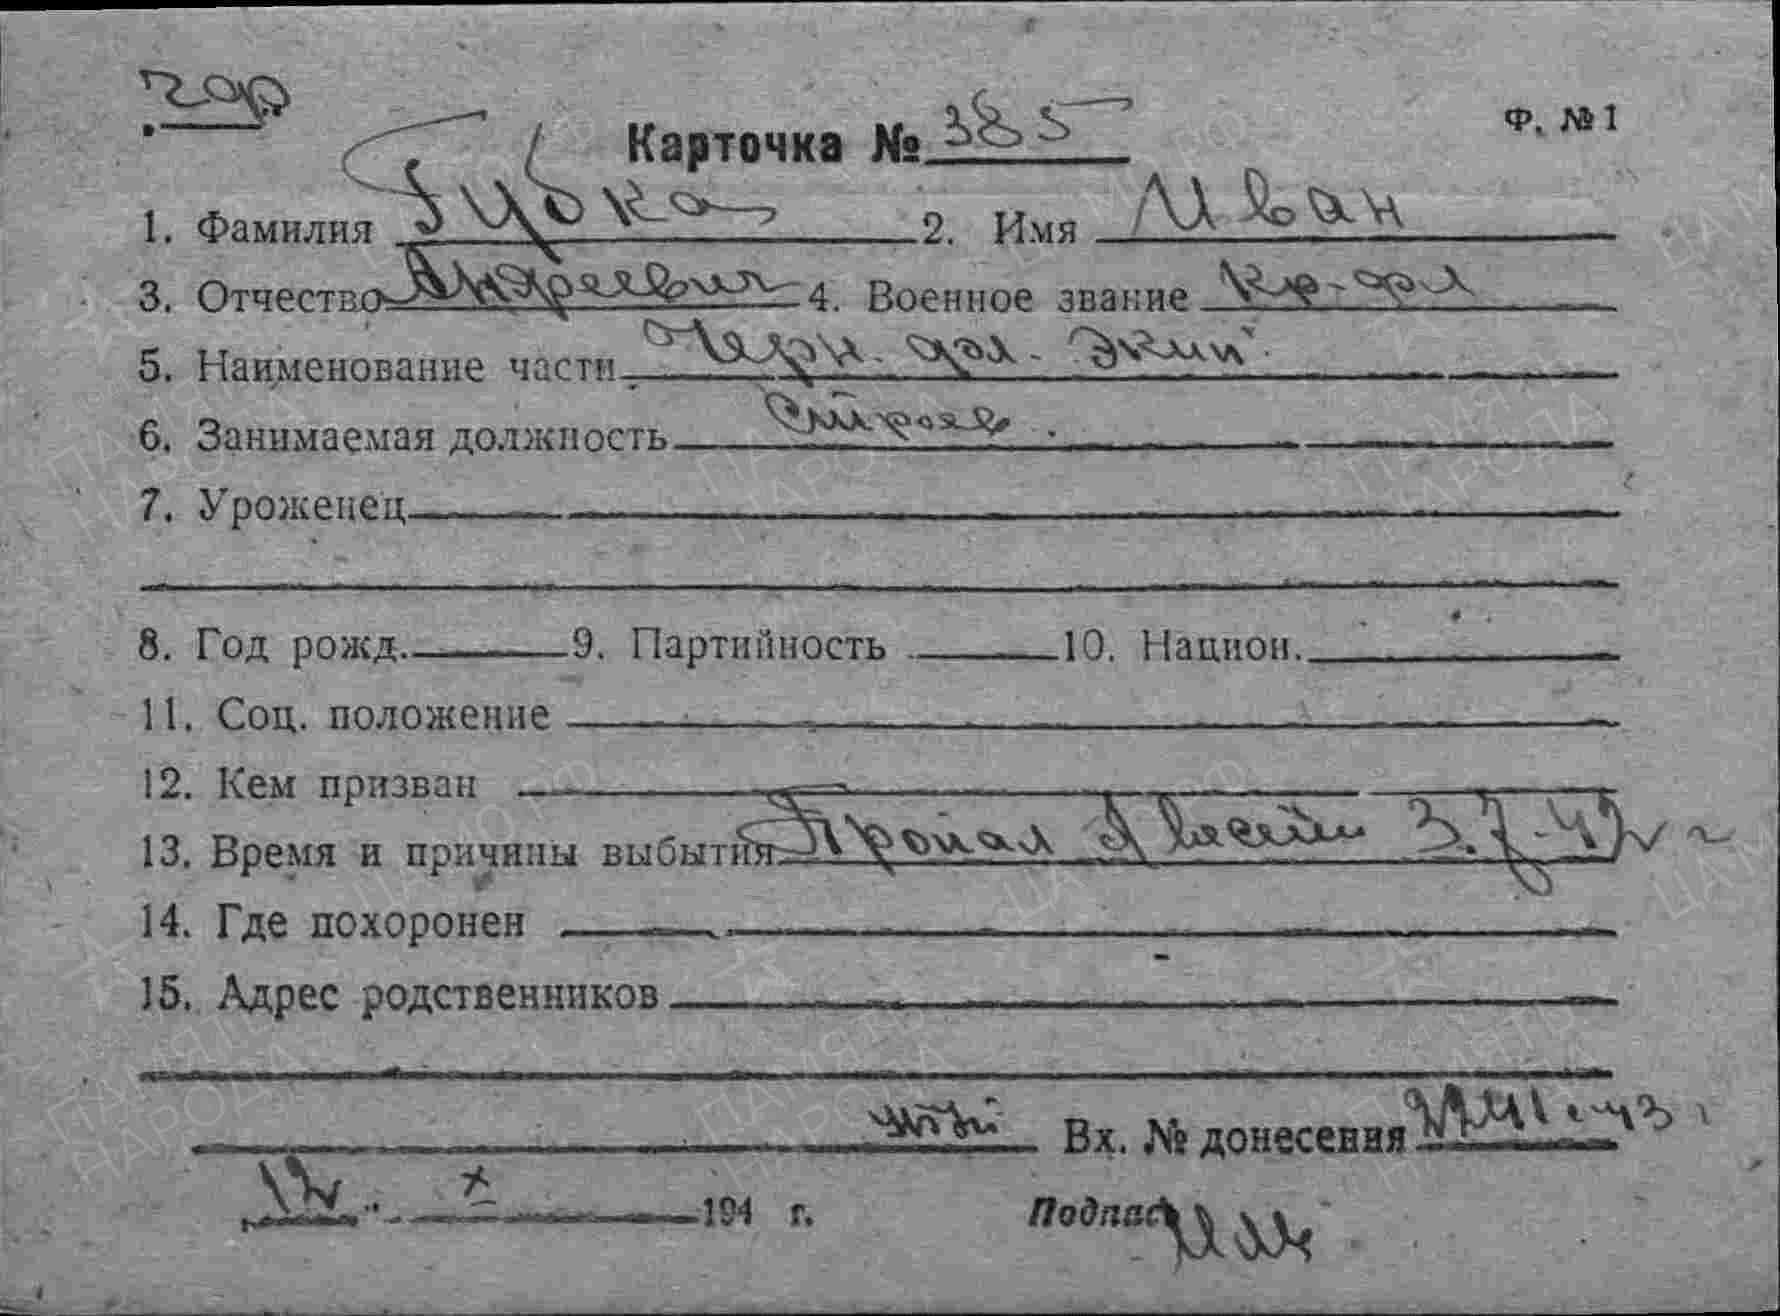 Ф. №1
Карточка № 385
1. Фамилия Губка 2. Имя Иван
3. Отчество Андреевич 4. Военное звание Кр-фл
5. Наименование части Черн. фл. Экип.
6. Занимаемая должность Строев.
7. Уроженец
8. Год рожд. 9. Партийность 10. Национ.
11. Соц. положение
12. Кем призван
13. Время и причины выбытия Пропал 3.7.42 г
14. Где похоронен
15. Адрес родственников
Вх. № донесения
12 X 194 г.
Подпись